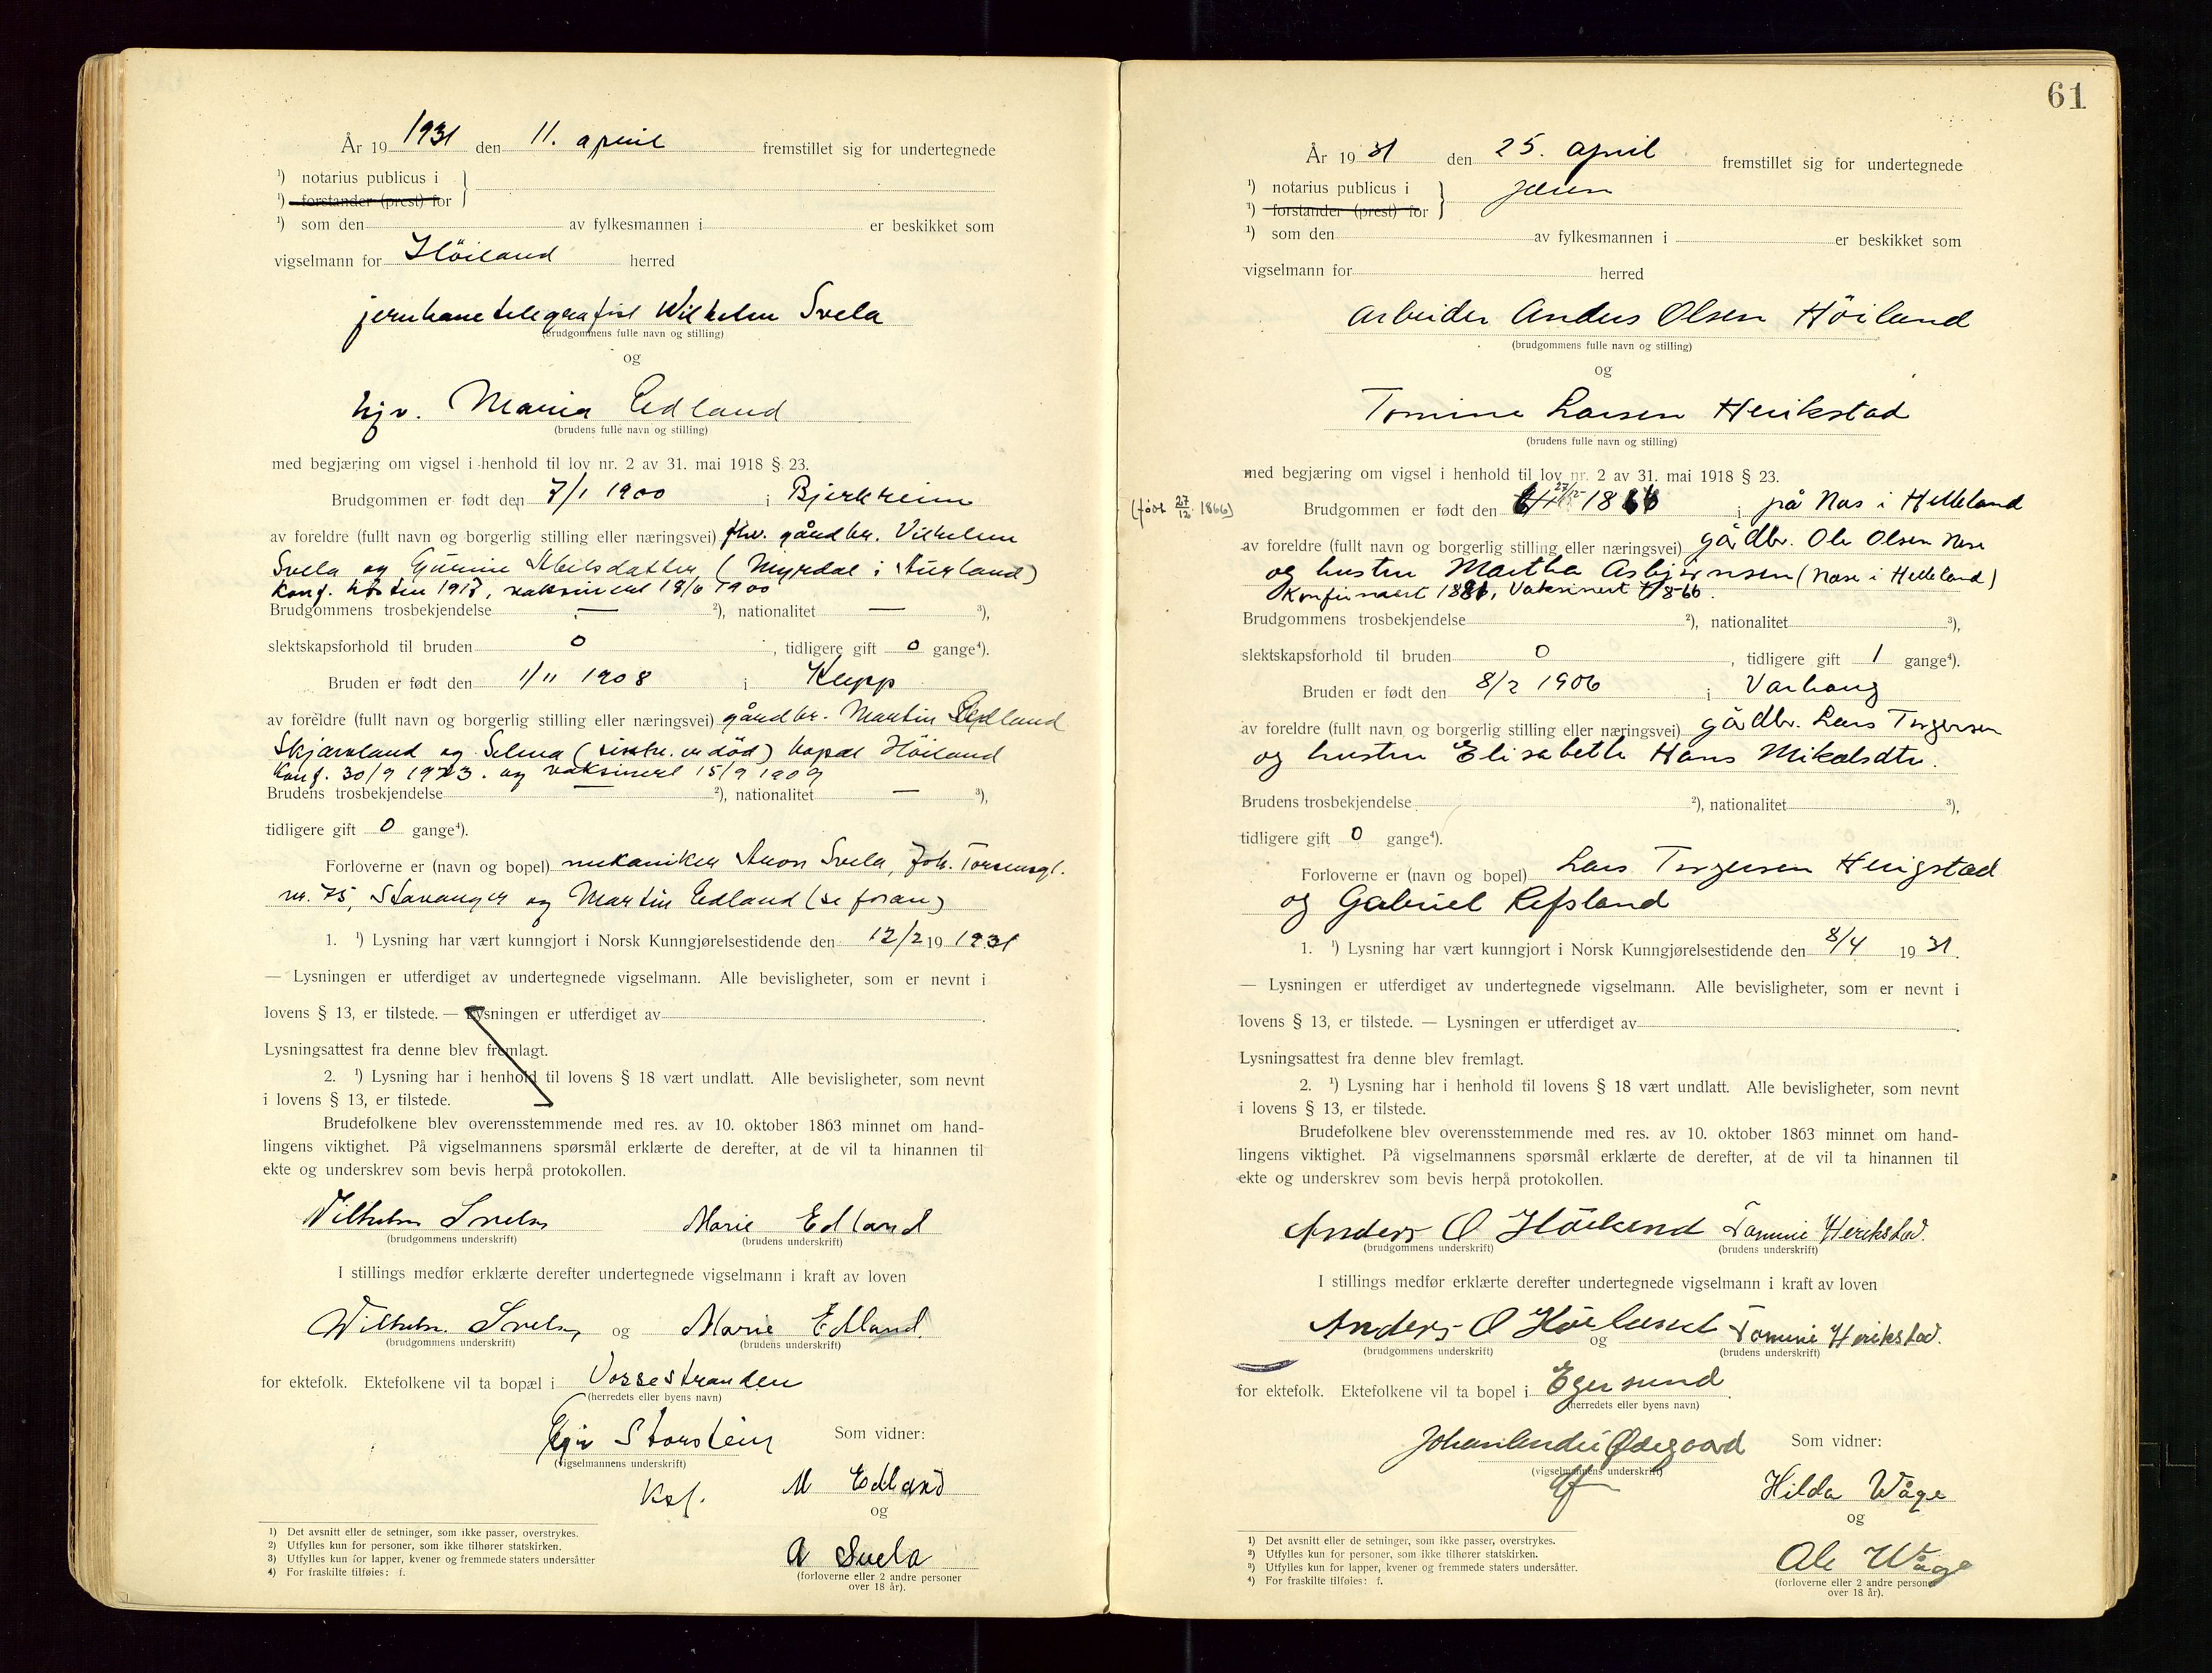 År 19 1931 den 11. april fremstillet sig for undertegnede
¹) notarius publicus i
¹) forstander (prest) for
¹) som den av fylkesmannen i er beskikket som
vigselmann for Höiland herred
jernbanetelegrafist Wilhelm Svela
(brudgommens fulle navn og stilling)
og
Maria Edland
(brudens fulle navn og stilling)
med begjæring om vigsel i henhold til lov nr. 2 av 31. mai 1918 § 23.
Brudgommen er født den 7/1 1900 i Bjerkreim
av foreldre (fullt navn og borgerlig stilling eller næringsvei) fhv. gårdbr. Vilhelm
Svela og Gurine (Myrdal i )
Konf. høsten 1917, vaksinert 18/6 1900
Brudgommens trosbekjendelse — ²), nationalitet — ³),
slektskapsforhold til bruden 0 , tidligere gift 0 gange⁴).
Bruden er født den 1/11 1908 i Klepp
av foreldre (fullt navn og borgerlig stilling eller næringsvei) gårdbr. Martin Edland
Skjæveland og Selma ( død) bopæl Höiland
Konf. 30/9 1923. og vaksinert 15/9 1909
Brudens trosbekjendelse — ²), nationalitet — ³),
tidligere gift 0 gange⁴).
Forloverne er (navn og bopel) mekaniker Aron Svela, Joh. Torsensgt.
nr. 75, Stavanger og Martin Edland (se foran)
1. ¹) Lysning har vært kunngjort i Norsk Kunngjørelsestidende den 12/2 19 1931
— Lysningen er utferdiget av undertegnede vigselmann. Alle bevisligheter, som er nevnt i
lovens § 13, er tilstede. — Lysningen er utferdiget av .
Lysningsattest fra denne blev fremlagt.
2. ¹) Lysning har i henhold til lovens § 18 vært undlatt. Alle bevisligheter, som nevnt
i lovens § 13, er tilstede.
Brudefolkene blev overensstemmende med res. av 10. oktober 1863 minnet om hand-
lingens viktighet. På vigselmannens spørsmål erklærte de derefter, at de vil ta hinannen til
ekte og underskrev som bevis herpå protokollen.
Vilhelm Svela Marie Edland
(brudgommens underskrift) (brudens underskrift)
I stillings medfør erklærte derefter undertegnede vigselmann i kraft av loven
Wilhelm Svela og Marie Edland.
(brudgommens underskrift) (brudens underskrift)
for ektefolk. Ektefolkene vil ta bopæl i Vossestranden
(herredets eller byens navn)
Storstein Som vidner:
(vigselmannens underskrift)
Ksf. M Edland
og
A Svela
(forloverne eller 2 andre personer
over 18 år).
1) Det avsnitt eller de setninger, som ikke passer, overstrykes.
2) Utfylles kun for personer, som ikke tilhører statskirken.
3) Utfylles kun for lapper, kvener og fremmede staters undersåtter
4) For fraskilte tilføies: f.
61
År 19 31 den 25. april fremstillet sig for undertegnede
¹) notarius publicus i Jæren
¹) forstander (prest) for
¹) som den av fylkesmannen i er beskikket som
vigselmann for herred
arbeider Anders Olsen Höiland
(brudgommens fulle navn og stilling)
og
Tomine Larsen Herikstad
(brudens fulle navn og stilling)
med begjæring om vigsel i henhold til lov nr. 2 av 31. mai 1918 § 23.
(født 27/12 1866) Brudgommen er født den 27/12 1866 i på Nas i Helleland
av foreldre (fullt navn og borgerlig stilling eller næringsvei) gådbr. Ole Olsen Nase
og hustru Martha Asbjörnsen (Nase i Helleland)
Konfirmert 1881, Vaksinert 7/8-66.
Brudgommens trosbekjendelse ²), nationalitet ³),
slektskapsforhold til bruden 0 , tidligere gift 1 gange⁴).
Bruden er født den 8/2 1906 i Varhaug
av foreldre (fullt navn og borgerlig stilling eller næringsvei) gådbr. Lars Torgersen
og hustru Elisabeth Hans Mikalsdtr.
Brudens trosbekjendelse ²), nationalitet ³),
tidligere gift 0 gange⁴).
Forloverne er (navn og bopel) Lars Torgersen Herigstad
og Gabriel Refsland
1. ¹) Lysning har vært kunngjort i Norsk Kunngjørelsestidende den 8/4 19 31.
— Lysningen er utferdiget av undertegnede vigselmann. Alle bevisligheter, som er nevnt i
lovens § 13, er tilstede. — Lysningen er utferdiget av .
Lysningsattest fra denne blev fremlagt.
2. ¹) Lysning har i henhold til lovens § 18 vært undlatt. Alle bevisligheter, som nevnt
i lovens § 13, er tilstede.
Brudefolkene blev overensstemmende med res. av 10. oktober 1863 minnet om hand-
lingens viktighet. På vigselmannens spørsmål erklærte de derefter, at de vil ta hinannen til
ekte og underskrev som bevis herpå protokollen.
Anders O Höiland Tomine Herikstad.
(brudgommens underskrift) (brudens underskrift)
I stillings medfør erklærte derefter undertegnede vigselmann i kraft av loven
Anders O Höiland og Tomine Herikstad.
(brudgommens underskrift) (brudens underskrift)
for ektefolk. Ektefolkene vil ta bopel i Egersund.
(herredets eller byens navn)
Johan Ødegaard Som vidner:
(vigselmannens underskrift)
Hilda Wåge
og
Ole Wåge
(forloverne eller 2 andre personer
over 18 år).
1) Det avsnitt eller de setninger, som ikke passer, overstrykes.
2) Utfylles kun for personer, som ikke tilhører statskirken.
3) Utfylles kun for lapper, kvener og fremmede staters undersåtter.
4) For fraskilte tilføies: f.